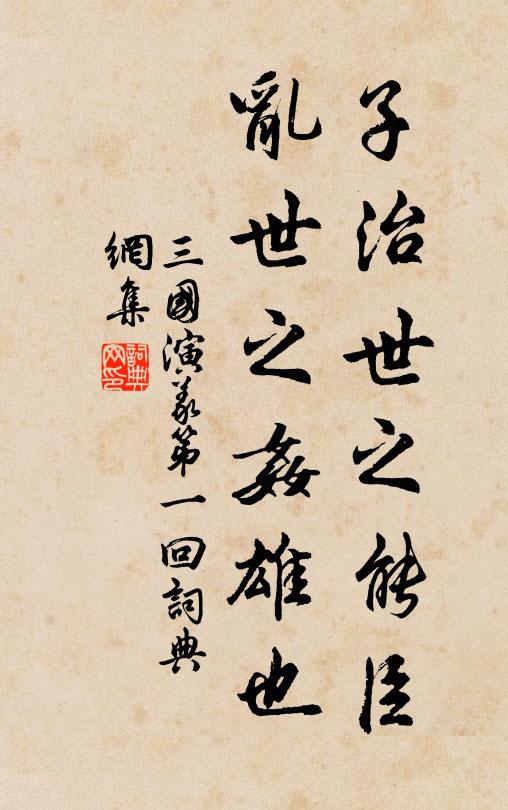 子治世之能臣
亂世之姦雄也
三國演義第一回詞典
網集
詞典
網印